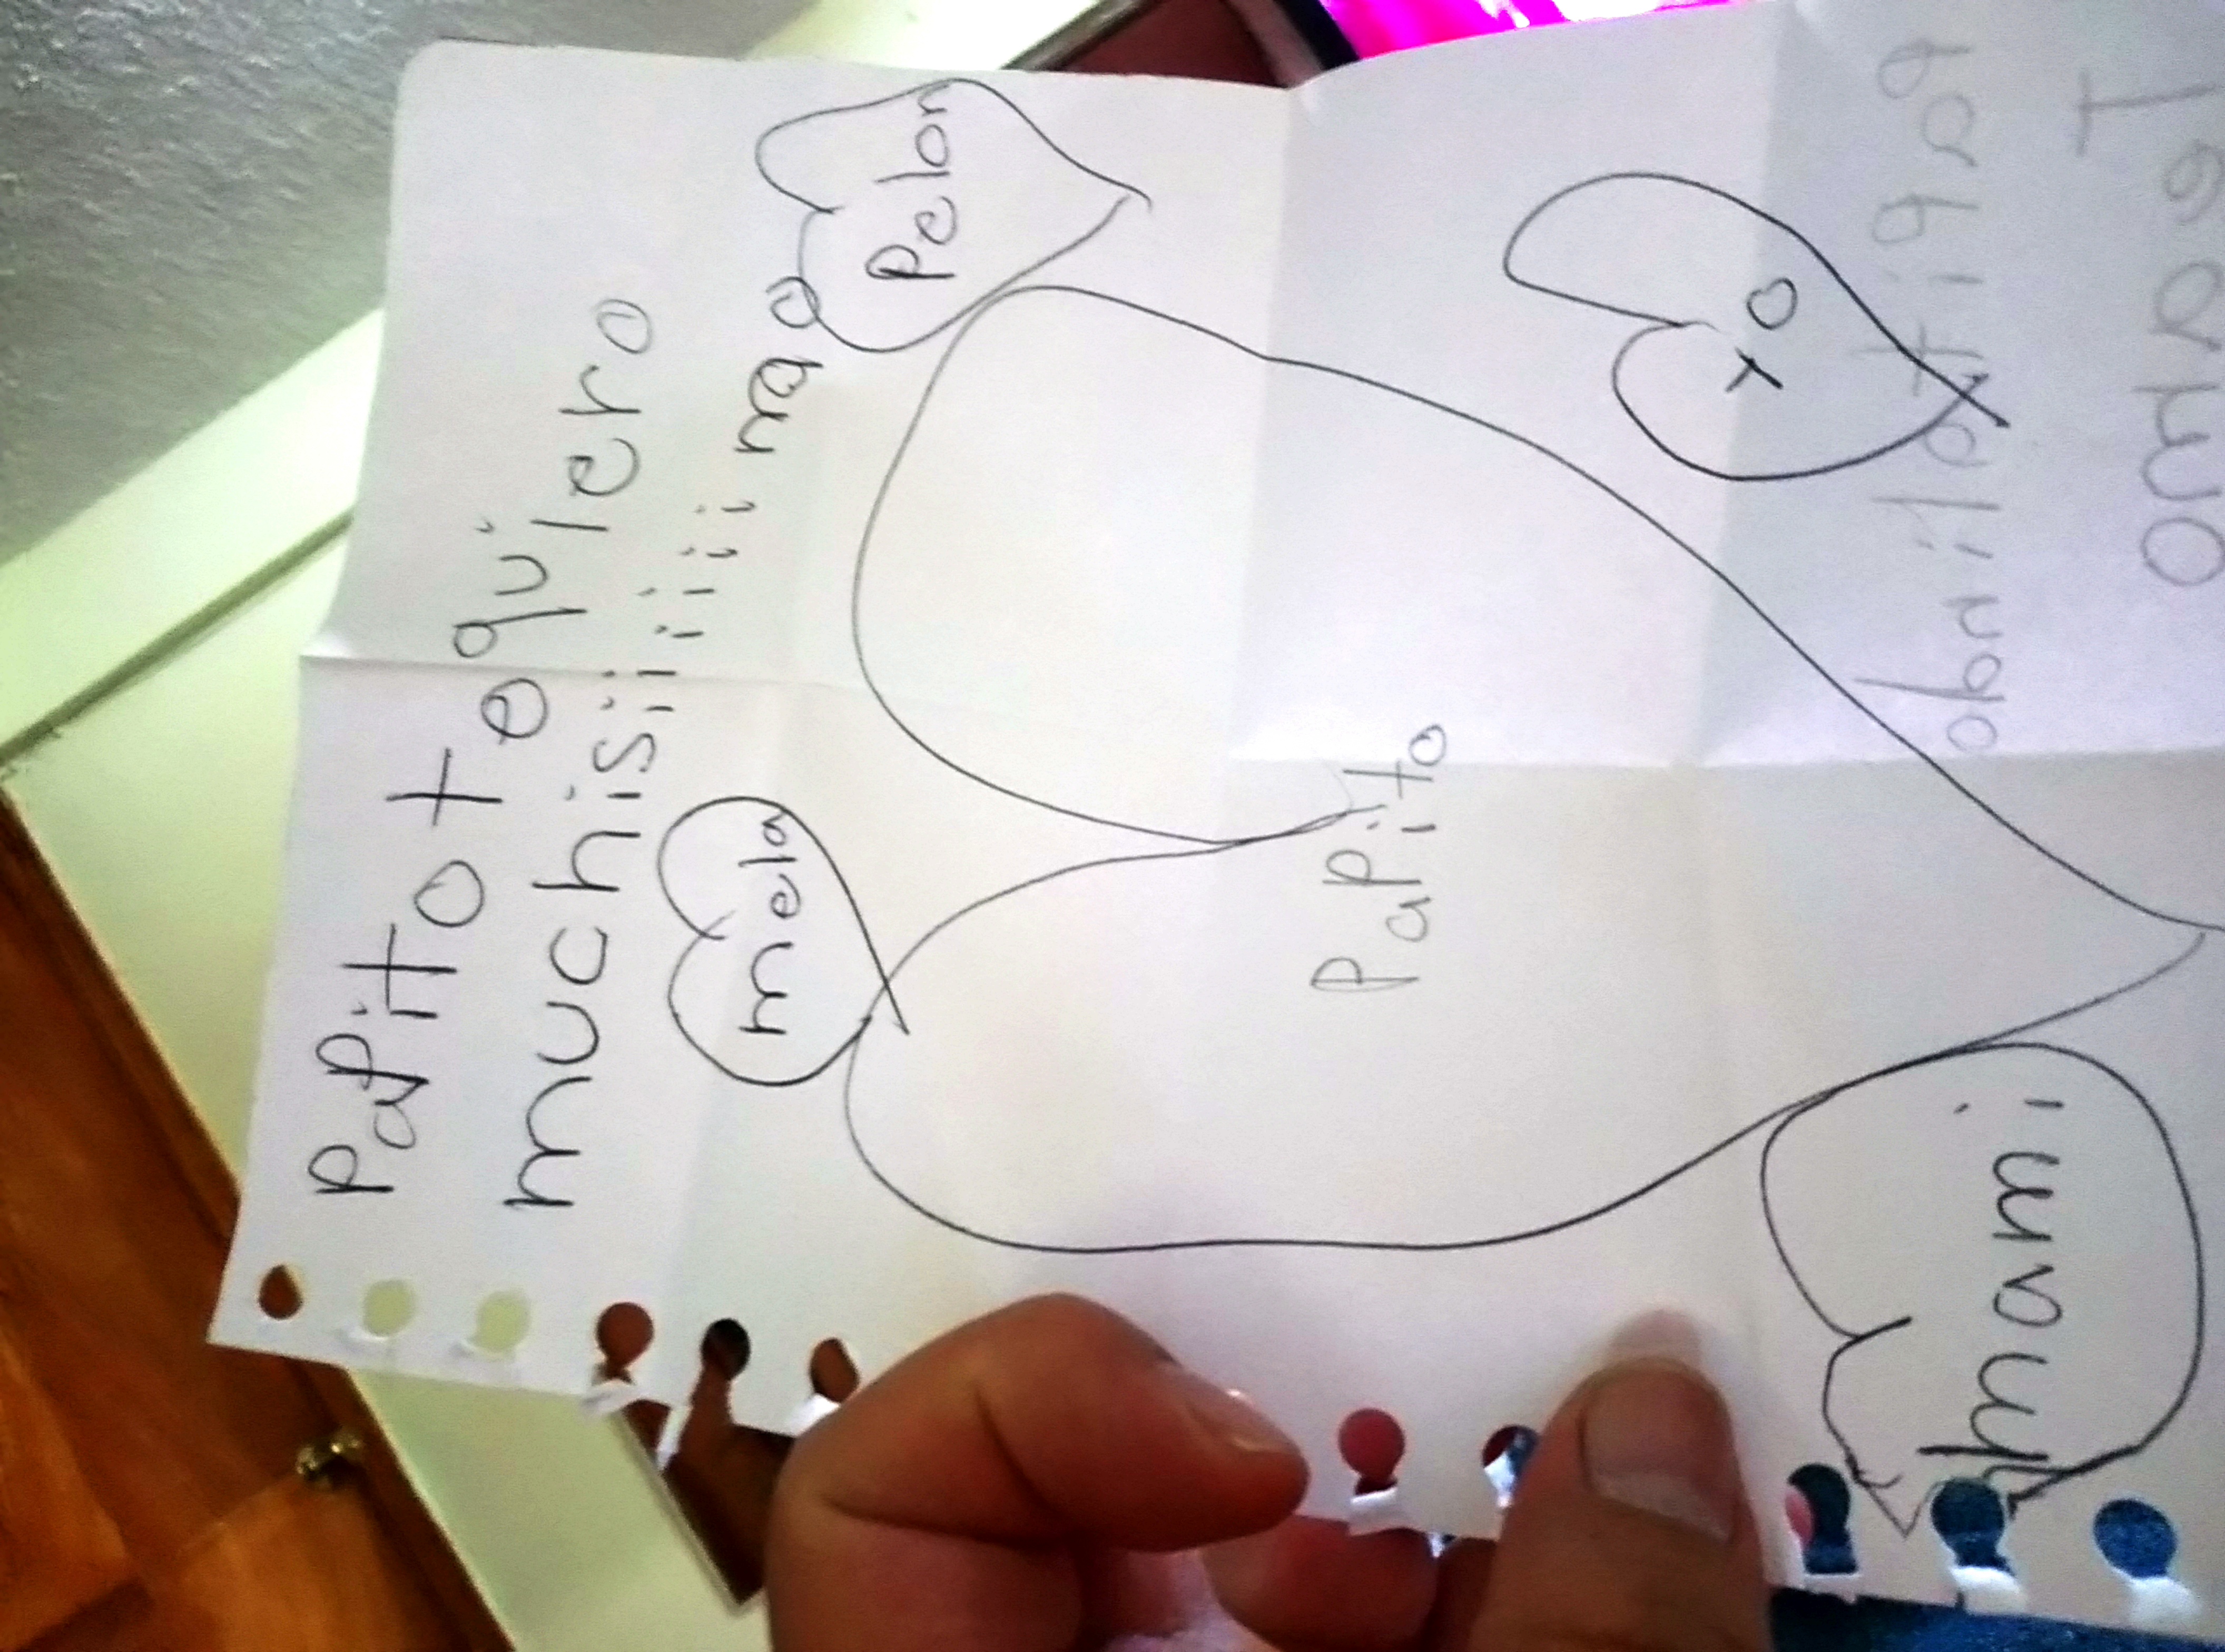 PaPito te quiero
muchisiiiiiiimo
mela
Pelon
PaPito
yo
mami
PaPito lindo
Te amo